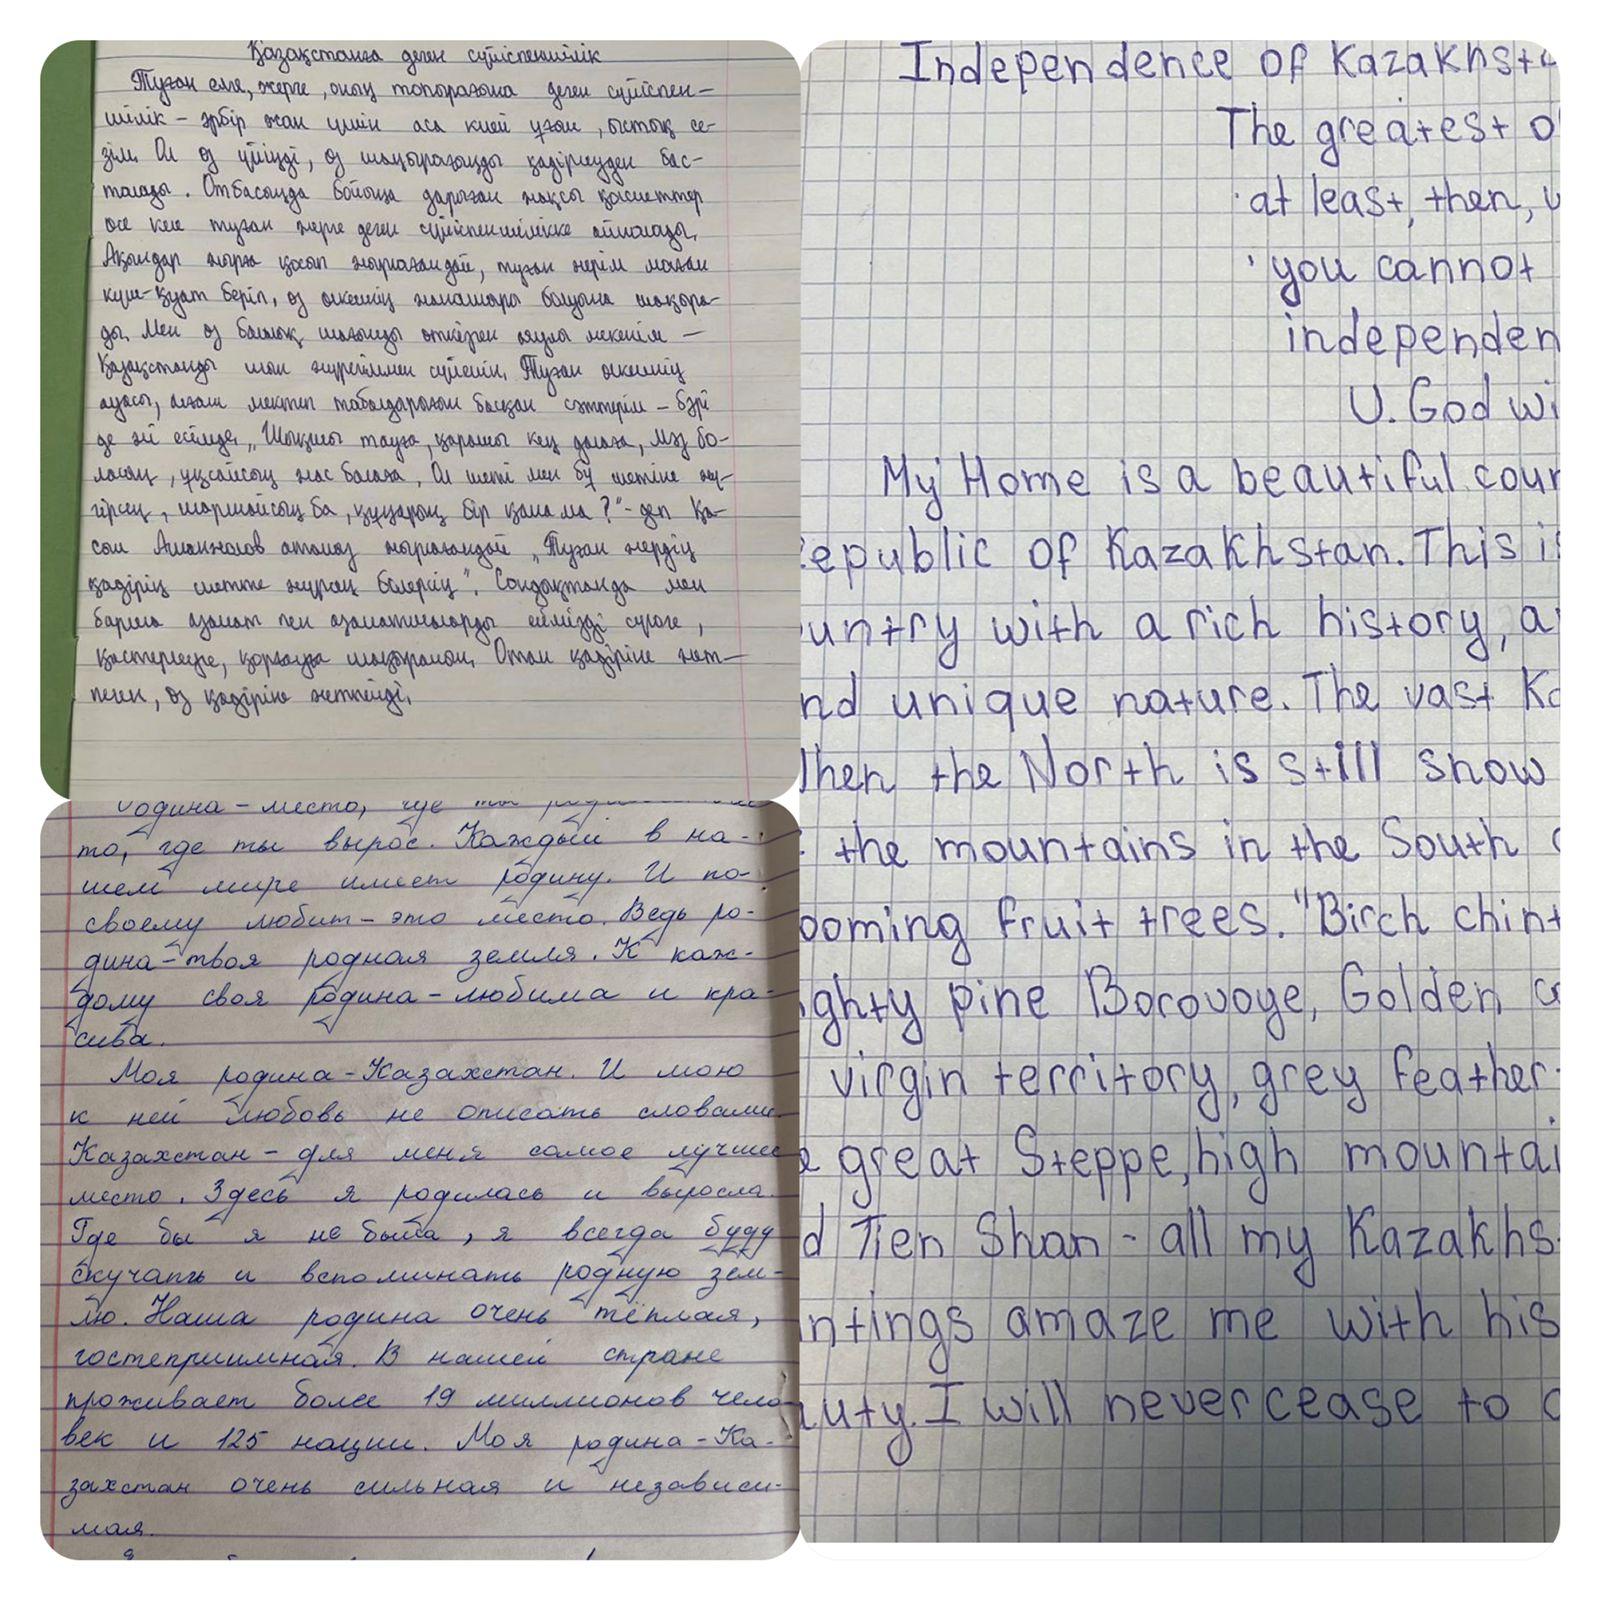 Қазақстанға деген сүйіспеншілік
Туған елге, жерге, оның топырағына деген сүйіспен-
шілік – әрбір жан үшін аса киелі ұғым, ыстық се-
зім. Ол өз үйіңді, өз шаңырағыңды қадірлеуден бас-
талады. Отбасыңда бойыңа дарыған жақсы қасиеттер
өсе келе туған жерге деген сүйіспеншілікке айналады.
Ақындар жырға қосып жырлағандай, туған жерім маған
күш-қуат беріп, өз өлкемнің жанашыры болуыма шақыра-
ды. Мен өз балалық шағымды өткізген аяулы мекенім –
Қазақстанды шын жүрегіммен сүйемін. Туған өлкемнің
ауасы, алғаш мектеп табалдырығын басқан сәттерім – бәрі
де әлі есімде. „Шықшы тауға, қарашы кең далаға, мәз бо-
ласың, ұқсайсың жас балаға, Ол шеті мен бұ шетіне жү-
гірсең, шаршайсың ба, құмарың бір қана ма?" - деп Қа-
сым Аманжолов атамыз жырлағандай „Туған жердің
қадірін шетте жүрсең білерсің". Сондықтанда мен
барша азамат пен азаматшаларды елімізді сүюге,
қастерлеуге, қорғауға шақырамын. Отан қадіріне жет-
пеген, өз қадіріне жетпейді.
Родина - место, где ты
то, где ты вырос. Каждый в на-
шем мире имеет родину. И по-
своему любит - это место. Ведь ро-
дина - твоя родная земля. К каж-
дому своя родина - любима и кра-
сива.
Моя родина - Казахстан. И мою
к ней любовь не описать словами.
Казахстан - для меня самое лучшее
место. Здесь я родилась и выросла.
Где бы я не была, я всегда буду
скучать и вспоминать родную зем-
лю. Наша родина очень тёплая,
гостеприимная. В нашей стране
проживает более 19 миллионов чело
век и 125 нации. Моя родина - Ка-
захстан очень сильная и независи-
мая.
Independence of Kazakhsta
The greatest o
at least, then,
you cannot
independen
U. God wi
My Home is a beautiful coun
epublic of Kazakhstan. This is
untry with a rich history, a
nd unique nature. The vast Ka
hen the North is still snow
the mountains in the South
ooming fruit trees. "Birch chint
ighty pine Borovoye, Golden
virgin territory, grey feather
e great Steppe, high mountai
d Tien Shan - all my Kazakhs
ntings amaze me with his
auty. I will never cease to